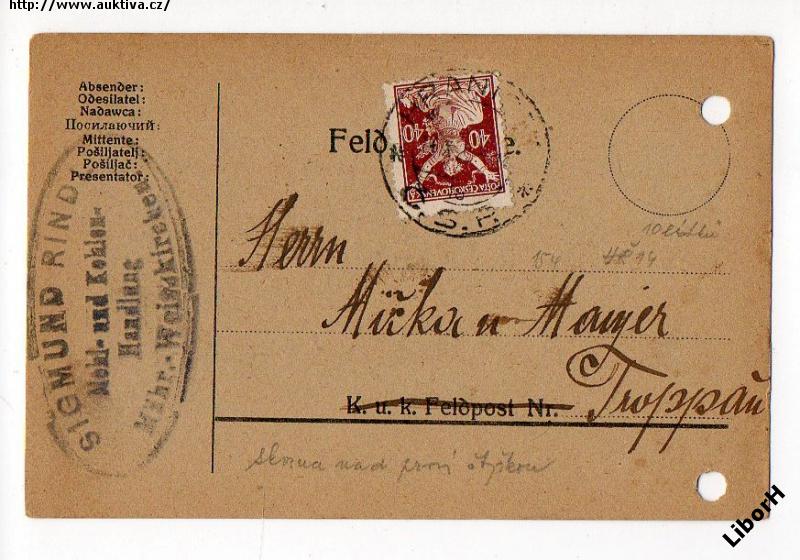 http://www.auktiva.cz/
Absender:
Odesílatel:
Nadawca:
Посилаючий:
Mittente:
Pošiljatelj:
Pošiljač:
Presentator:
SIGMUND RIND
Mehl- und Kohlen-
Handlung
Mähr.-Weisskirchen
Feld
40 40
POŠTA ČESKOSLOVENSKÁ
Č.S.P.
Herrn
154 14
Mička u Mayer
K. u. k. Feldpost Nr.
Troppau
nad první
LiborH